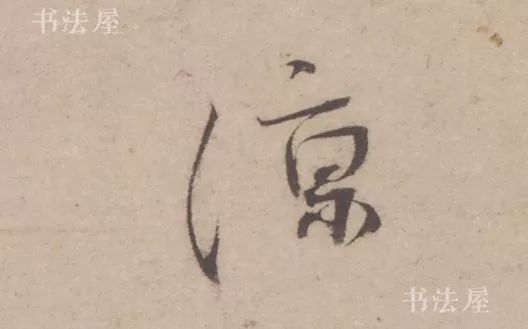 书法屋
涼
书法屋